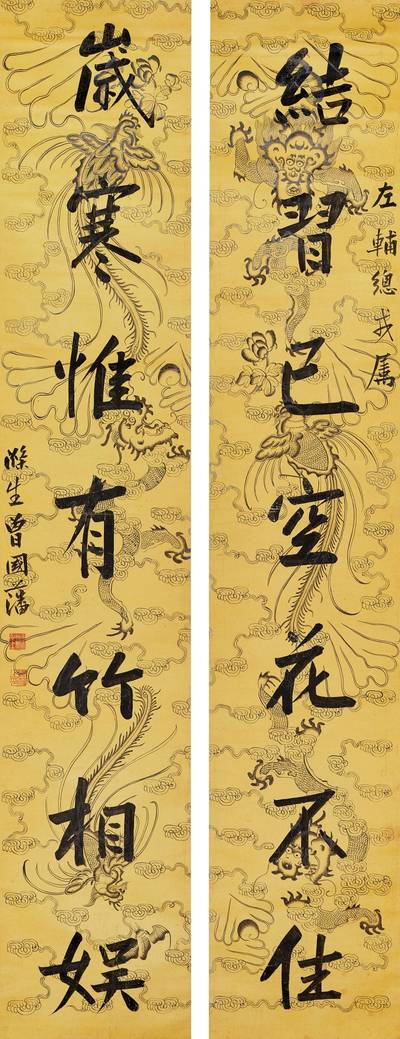 結習已空花不住
左輔總戎属
歲寒惟有竹相娛
滌生曾國藩